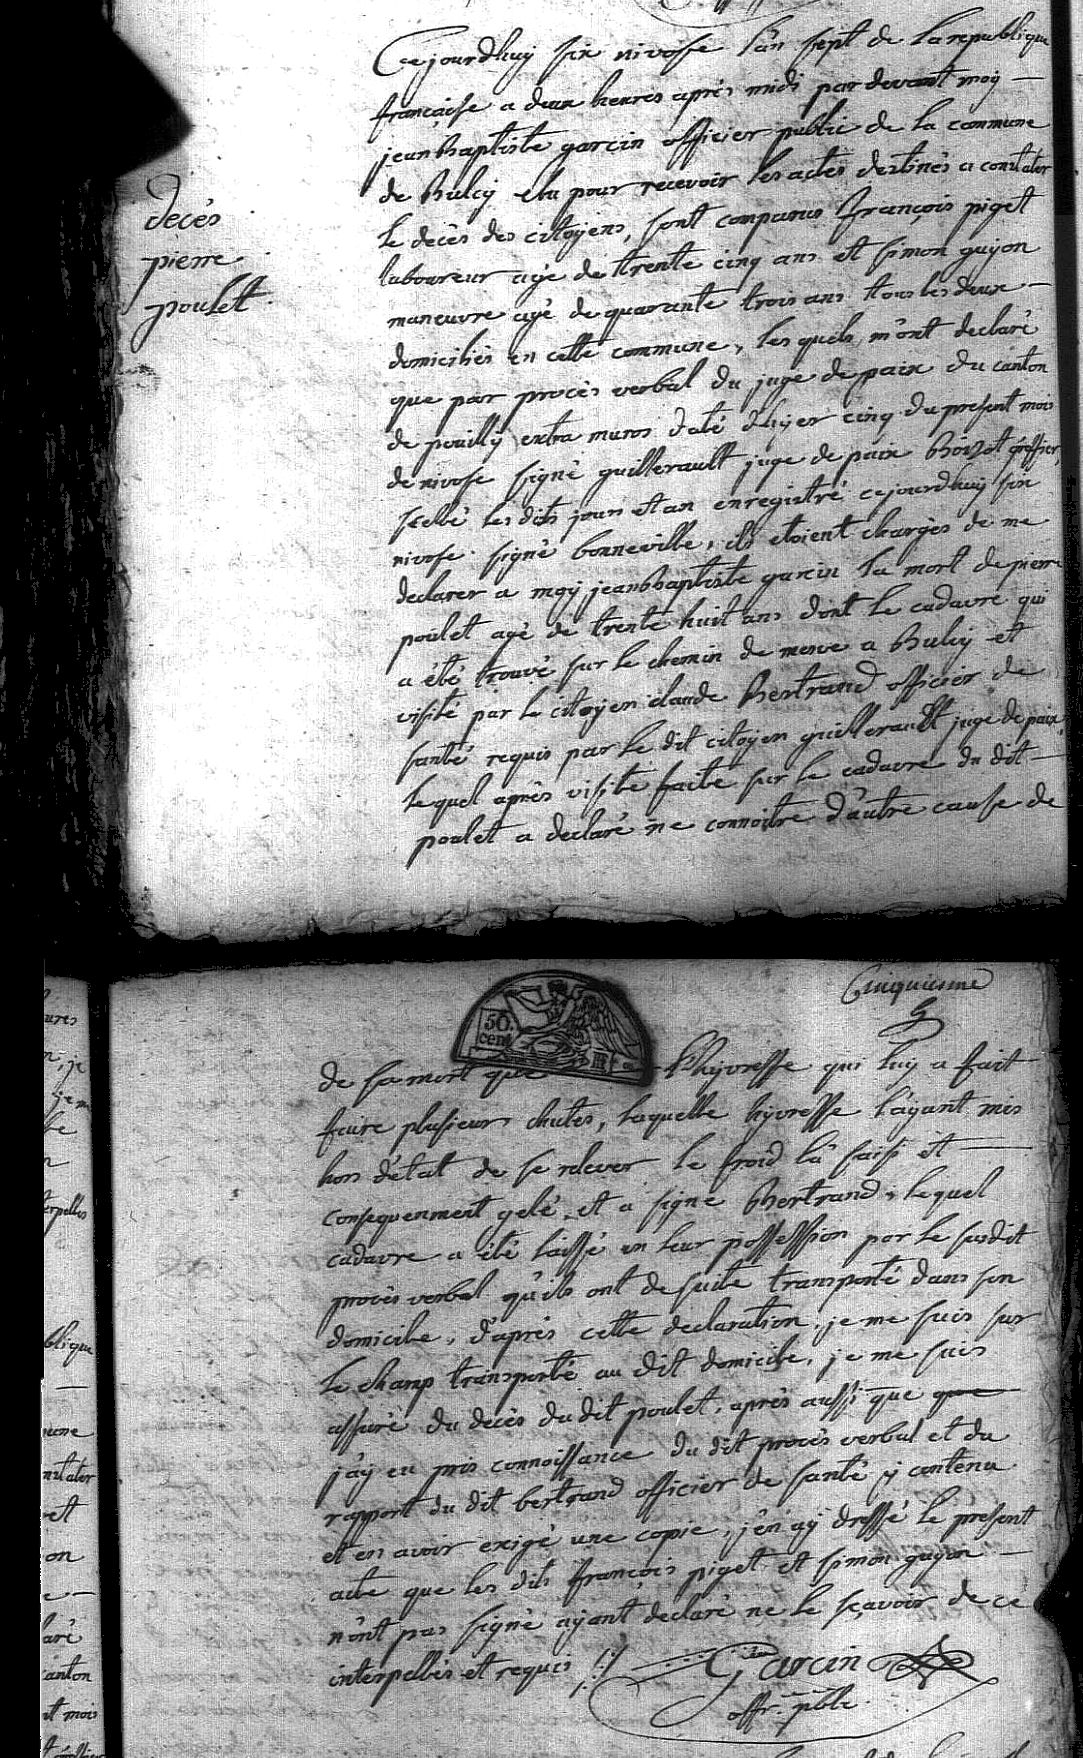 Cejourdhuy six nivose l'an sept de la republique
française a deux heures après midi pardevant moy
jean baptiste garcin officier public de la commune
de Bulcy elu pour recevoir les actes destinés a constater
le decès des citoyens, sont comparus françois piget
laboureur agé de trente cinq ans et simon guyon
maneuvre agé de quarante trois ans tous les deux
domiciliés en cette commune, les quels m'ont declaré
que par procès verbal du juge depaix du canton
de pouilly extra muros daté d'hyer cinq du present mois
de nivose signé guillerault juge de paix Boizot greffier,
scelbé les dits jour et an enregistré cejourdhuy six
nivose signé bonneville, ils etoient chargés de me
declarer a moy jean baptiste garcin la mort de pierre
poulet agé de trente huit ans dont le cadavre qui
a été trouvé sur le chemin de mesve a Bulcy et
visité par le citoyen claude Bertrand officier de
santé requis par le dit citoyen guillerault juge de paix
lequel après visite faite sur le cadavre du dit
poulet a declaré ne connoitre d'autre cause de
decès
pierre
poulet
Cinquiesme
50.
cent
de sa mort que l'hyvresse qui luy a fait
faire plusieurs chutes, laquelle hyvresse l'ayant mis
hors d'état de se relever le froid l'a saisi et
consequenment gelé, et a signé Bertrand, lequel
cadavre a été laissé en leur possession par le susdit
procès verbal qu'ils ont de suite transporté dans son
domicile, d'après cette declaration, je me suis sur
le champ transporté au dit domicile, je me suis
assuré du decès dudit poulet, après aussi que que
j'ay eu pris connoissance du dit procès verbal et du
rapport du dit bertrand officier de santé y contenu
et en avoir exigé une copie, j'en ay dressé le present
acte que les dits françois piget et simon guyon
n'ont pas signé ayant declaré ne le sçavoir de ce
interpellés et requis
Garcin
offr. pblc